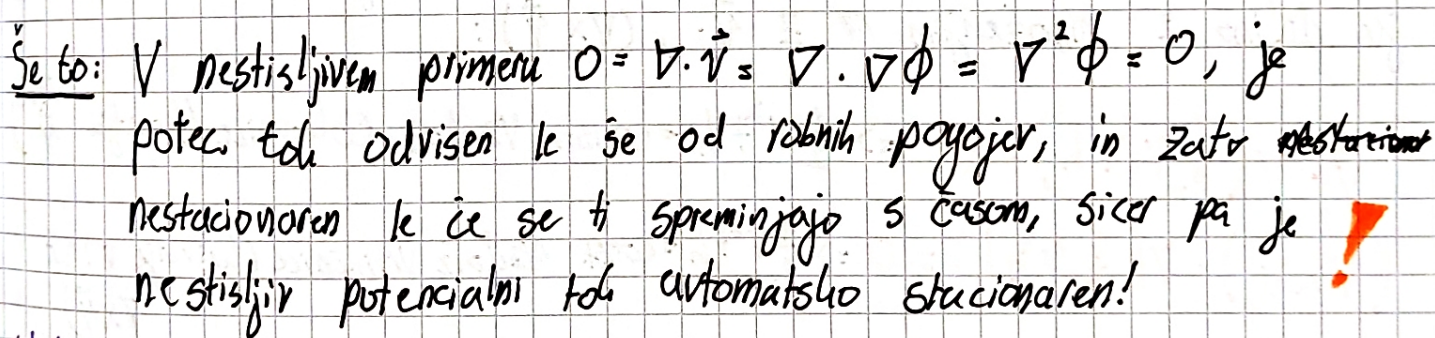 Še to: V nestisljivem primeru 0 = ∇·v⃗ = ∇·∇ϕ = ∇²ϕ = 0, je
potec. tok odvisen le še od robnih pogojev, in zato
nestacionaren le če se ti spreminjajo s časom, sicer pa je !
nestisljiv potencialni tok avtomatsko stacionaren!